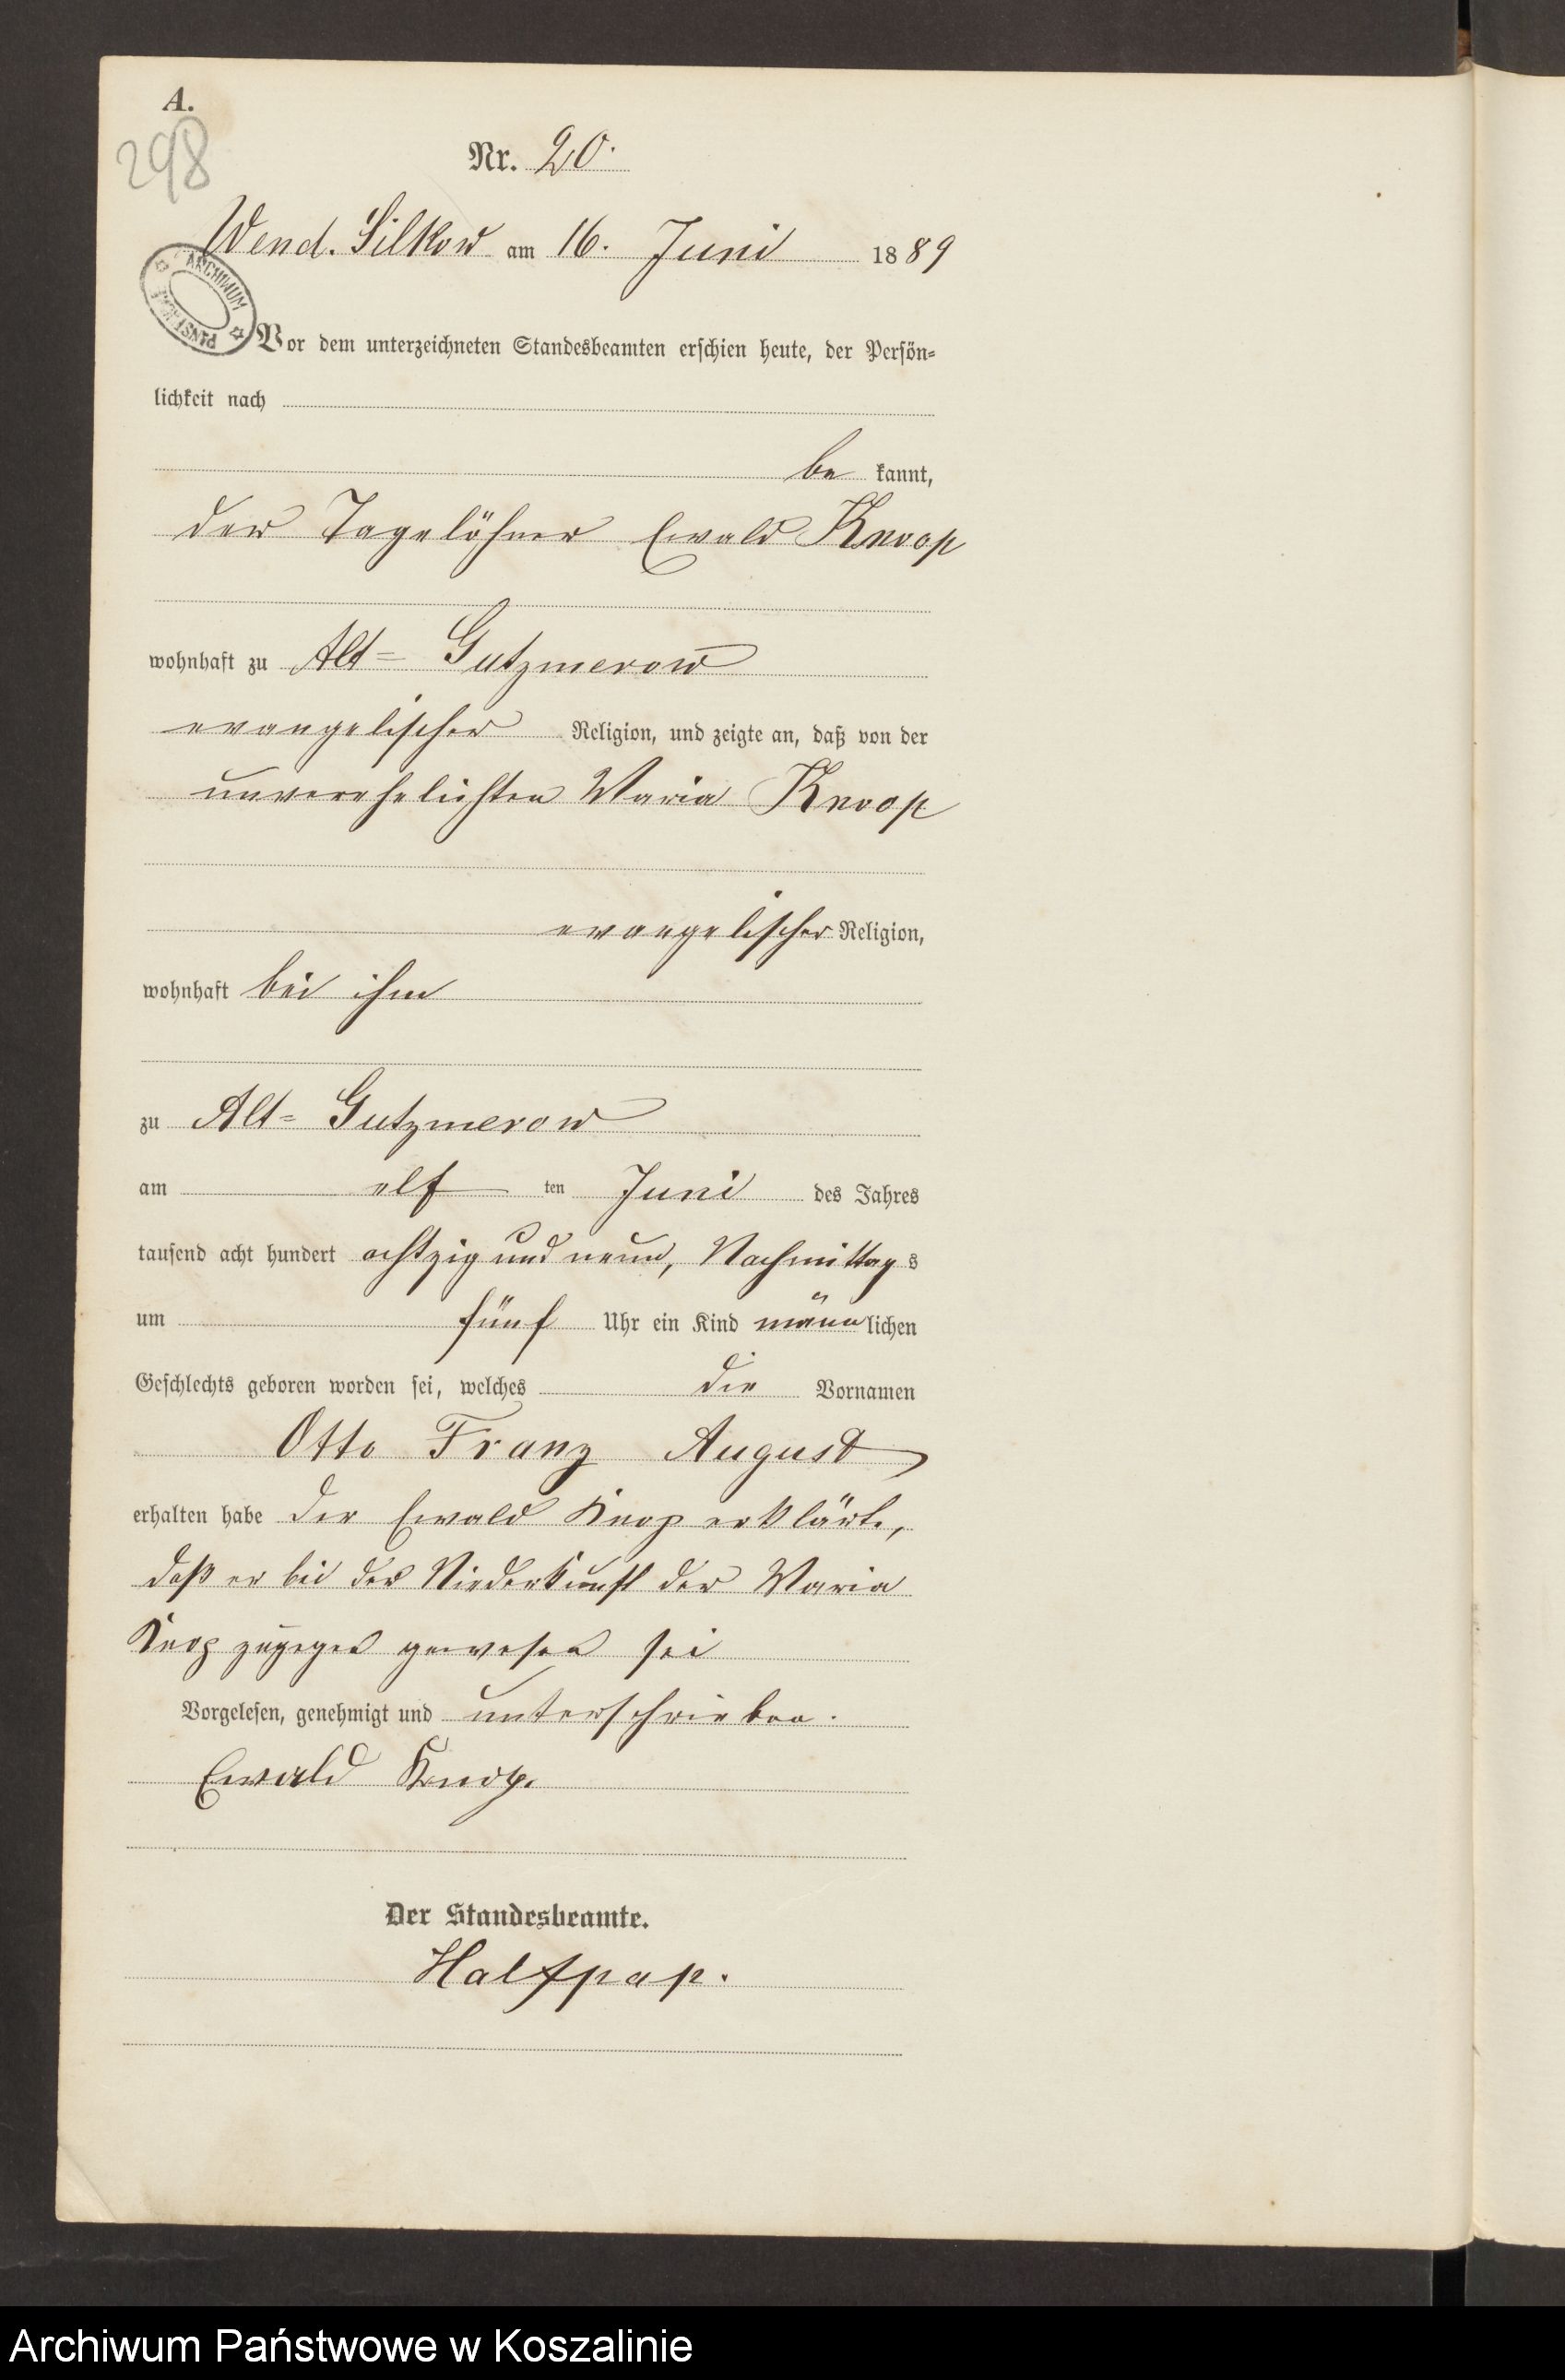 A.
298
Nr. 20.
Wend. Silkow am 16. Juni 1889
ARCHIWUM
Vor dem unterzeichneten Standesbeamten erschien heute, der Persön-
lichkeit nach
be kannt,
der Tagelöhner Ewald Knoop
wohnhaft zu Alt- Gutzmerow
evangelischer Religion, und zeigte an, daß von der
unverehelichten Maria Knoop
evangelischer Religion,
wohnhaft bei ihm
zu Alt- Gutzmerow
am elf ten Juni des Jahres
tausend acht hundert achtzig und neun, Nachmittags
um fünf Uhr ein Kind männlichen
Geschlechts geboren worden sei, welches die Vornamen
Otto Franz August
erhalten habe Der Ewald Knop erklärte,
daß er bei der Niederkunft der Maria
Knop zugegen gewesen sei
Vorgelesen, genehmigt und unterschrieben.
Ewald Knop.
Der Standesbeamte.
Halfpap.
Archiwum Państwowe w Koszalinie